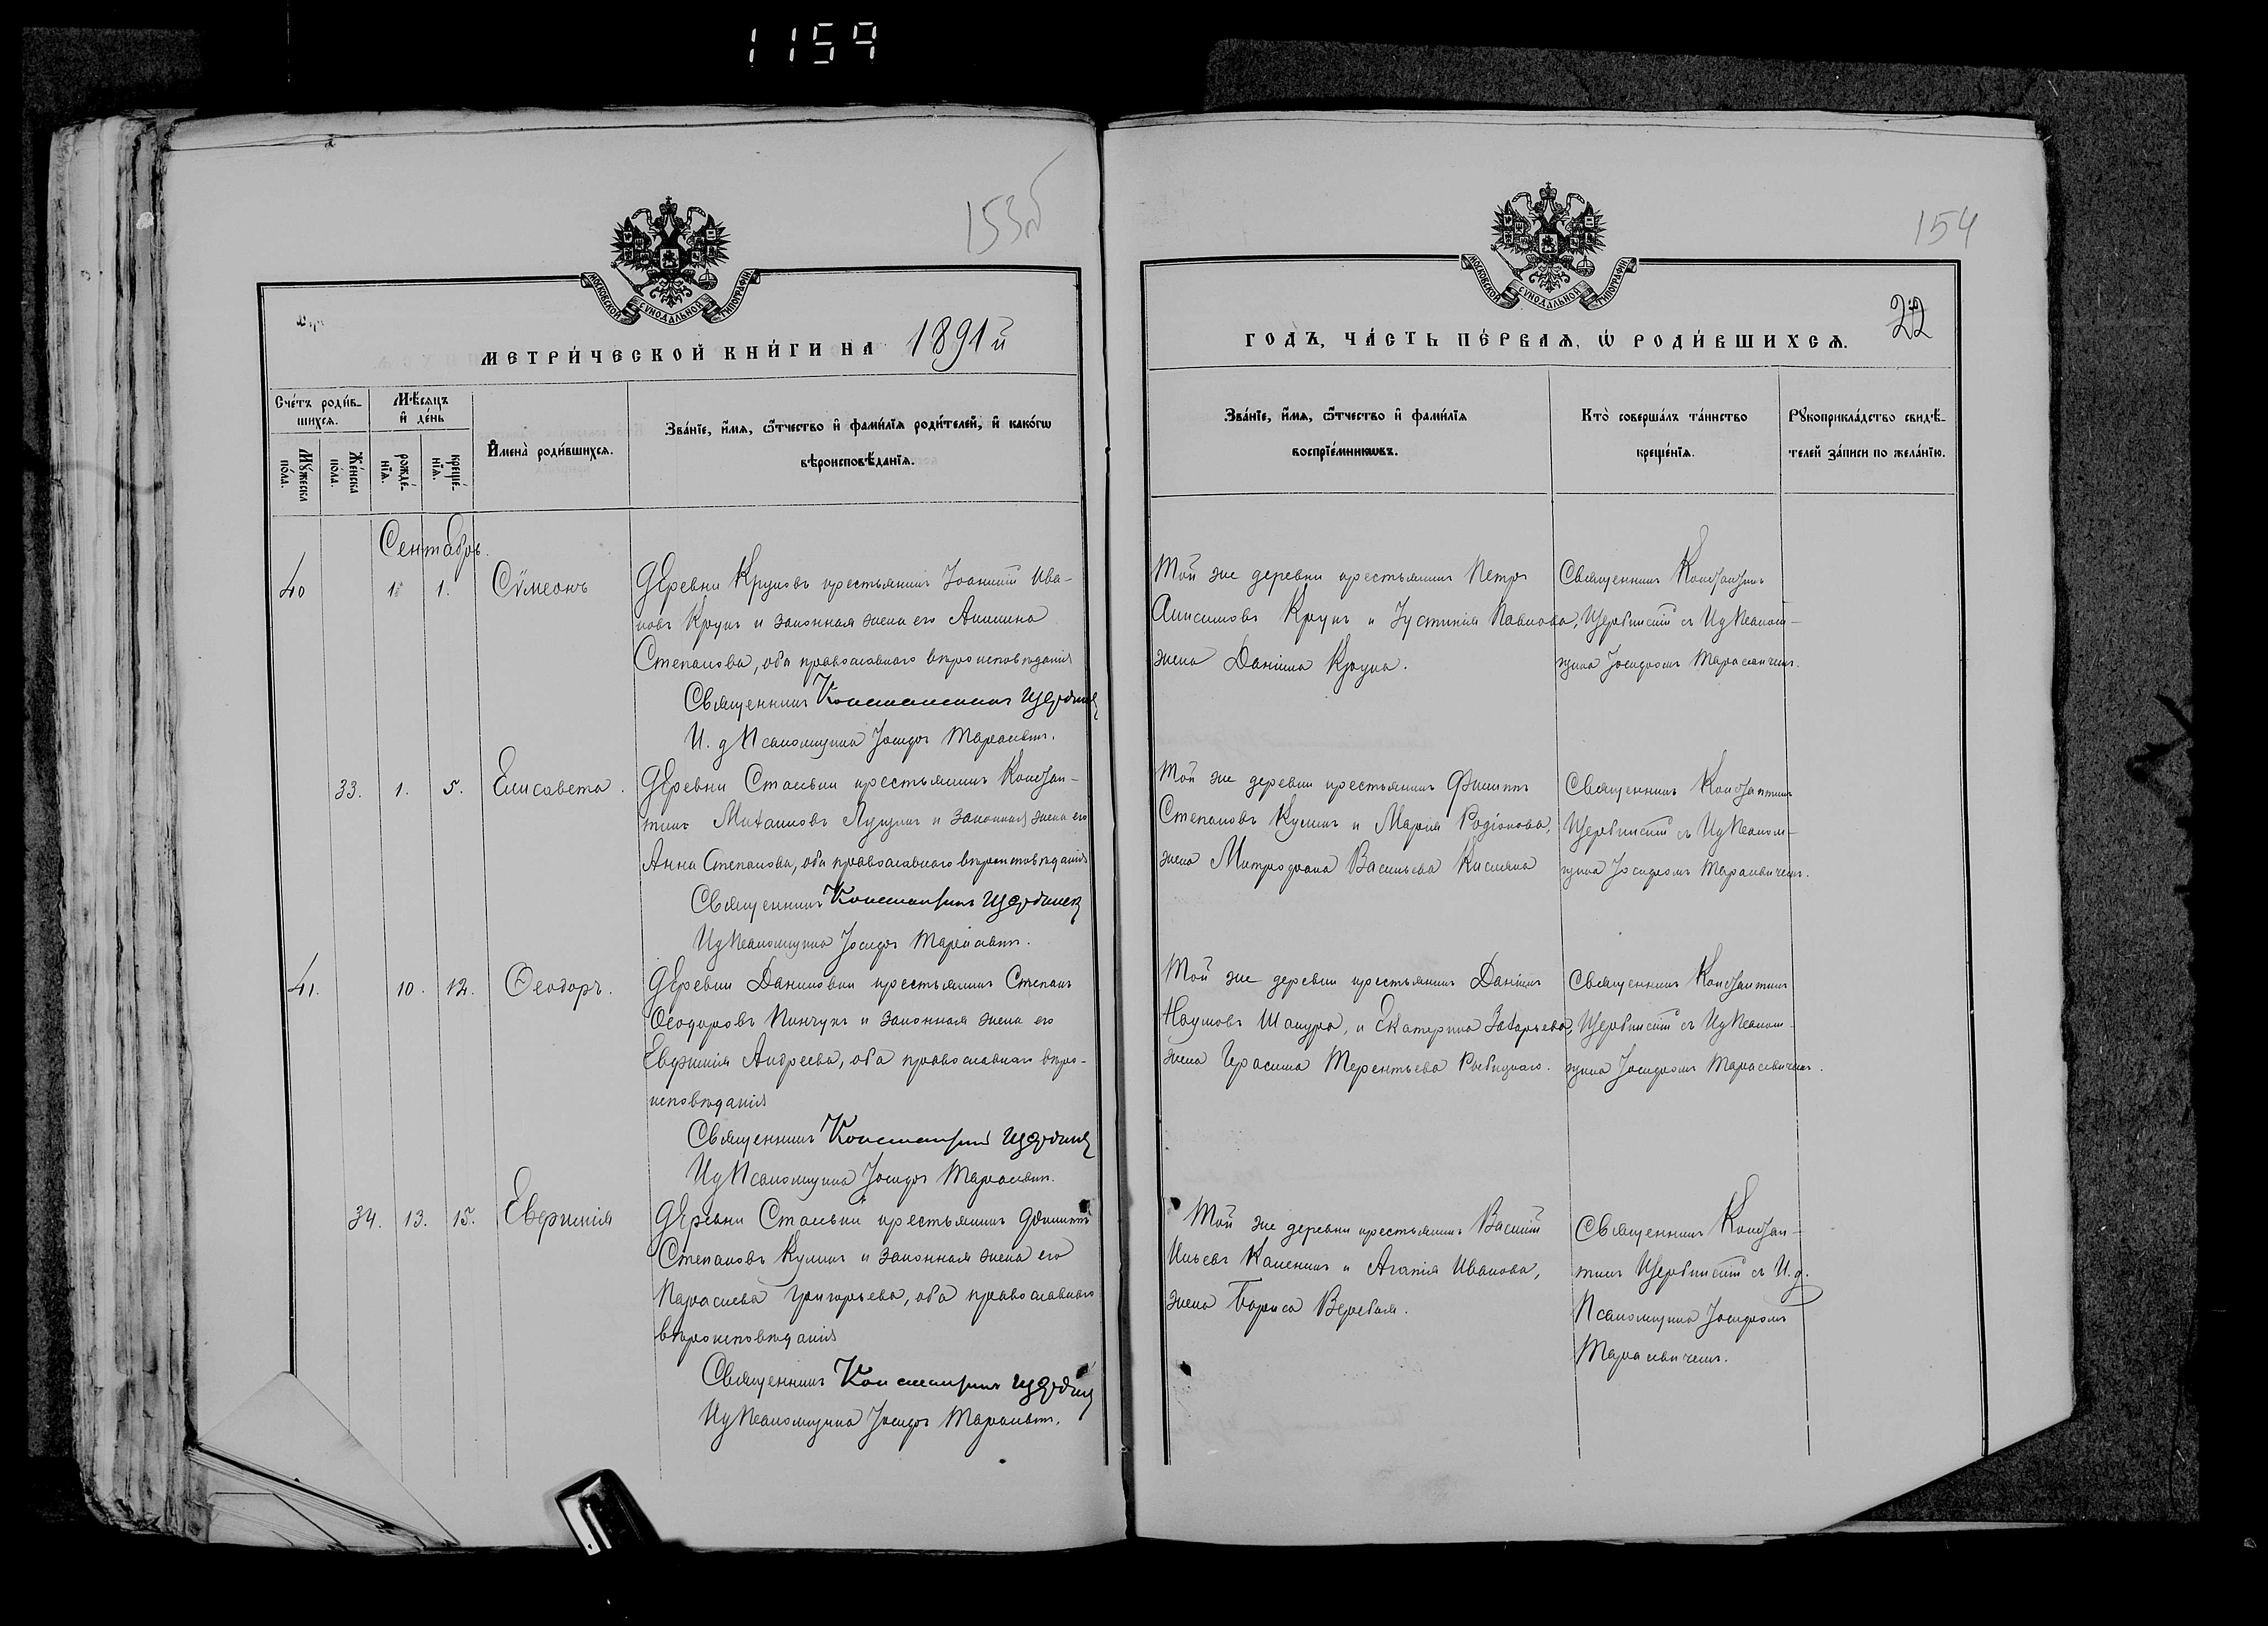 1159
153б
МОСКОВСКОЙ СѴНОДАЛЬНОЙ ТИПОГРАФІИ
МЕТРИ́ЧЕСКОЙ КНИ́ГИ НА 1891й
Сче́тъ роди́в-
шихсѧ.
Мꙋ́жеска
по́ла.
Же́нска
по́ла.
Мѣ́сѧцъ
и҆ де́нь
рожде́-
нїѧ.
креще́-
нїѧ.
И҆мена̀ роди́вшихсѧ.
Зва́нїе, и҆́мѧ, ѻ҆́тчество и҆ фами́лїѧ роди́телей, и҆ како́гѡ
вѣроисповѣ́данїѧ.
Сентябрь.
40 1. 1. Сѵмеонъ
Деревни Круковъ крестьянинъ Іоанникій Ива-
новъ Крукъ и законная жена его Акилина
Степанова, оба православнаго вѣроисповѣданія
Священникъ Константинъ Щербинскій
И. д Псаломщика Іосифъ Тарасевичъ.
33. 1. 5. Елисавета.
Деревни Стаськи крестьянинъ Констан-
тинъ Михаиловъ и законная жена его
Анна Степанова, оба православнаго вѣроисповѣданія
Священникъ Константинъ Щербинскій
Ид Псаломщика Іосифъ Тарасевичъ.
41. 10. 12. Ѳеодоръ.
Деревни Даниловки крестьянинъ Степанъ
Ѳеодоровъ Пинчукъ и законная жена его
Евфимія Андреева, оба православнаго вѣро-
исповѣданія
Священникъ Константинъ Щербинскій
Ид Псаломщика Іосифъ Тарасевичъ.
34. 13. 15. Евфимія
Деревни Стаськи крестьянинъ Филиппъ
Степановъ Кулишъ и законная жена его
Параскева Григорьева, оба православнаго
вѣроисповѣданія
Священникъ Константинъ Щербинскій
Ид Псаломщика Іосифъ Тарасевичъ.
154
МОСКОВСКОЙ СѴНОДАЛЬНОЙ ТИПОГРАФІИ
22
ГОДЪ, ЧА́СТЬ ПЕ́РВАѦ, Ѡ҆ РОДИ́ВШИХСѦ.
Зва́нїе, и҆́мѧ, ѻ҆́тчество и҆ фами́лїѧ
воспрїе́мникѡвъ.
Кто̀ соверша́лъ та́инство
креще́нїѧ.
Рꙋкоприкла́дство свидѣ́-
телей за́писи по жела́нїю.
Той же деревни крестьянинъ Петръ
Анисимовъ Крукъ и Іустинія Павлова,
жена Даніила Крука.
Священникъ Константинъ
Щербинскій съ Ид Псалом-
щика Іосифомъ Тарасевичемъ.
Той же деревни крестьянинъ Филиппъ
Степановъ Кулишъ и Марія Родіонова,
жена Митрофана Васильева Кисляка
Священникъ Константинъ
Щербинскій съ Ид Псалом-
щика Іосифомъ Тарасевичемъ.
Той же деревни крестьянинъ Даніилъ
Наумовъ Шакура, и Екатерина Захарьева,
жена Герасима Терентьева Рыбицкаго.
Священникъ Константинъ
Щербинскій съ Ид Псалом-
щика Іосифомъ Тарасевичемъ.
Той же деревни крестьянинъ Василій
Ильевъ и Агапія Иванова,
жена Бориса Веребья.
Священникъ Констан-
тинъ Щербинскій съ И. д.
Псаломщика Іосифомъ
Тарасевичемъ.